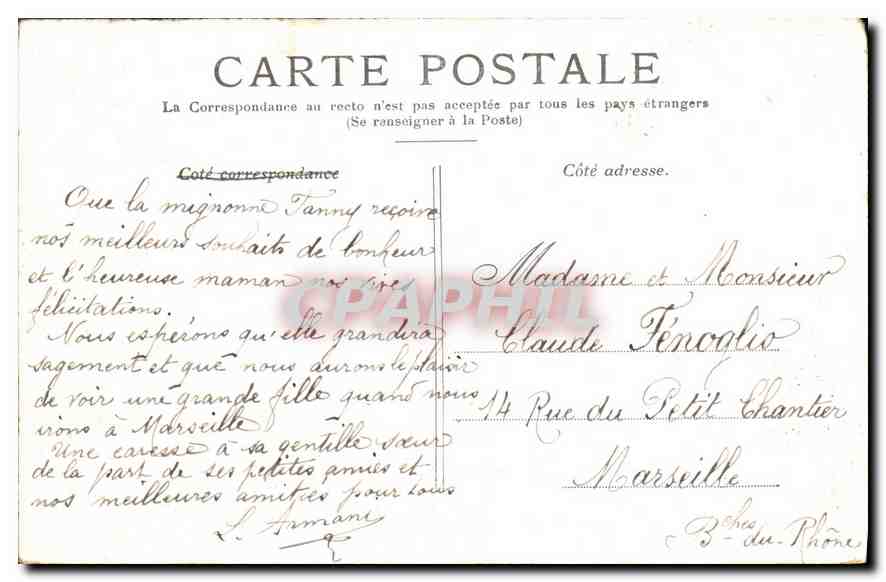 CARTE POSTALE
La Correspondance au recto n'est pas acceptée par tous les pays étrangers
(Se renseigner à la Poste)
Coté correspondance
Que la mignonne Fanny reçoive
nos meilleurs souhaits de bonheur
et l'heureuse maman nos vives
félicitations.
Nous espérons qu'elle grandira
sagement et que nous aurons le plaisir
de voir une grande fille quand nous
irons à Marseille
Une caresse à sa gentille sœur
de la part de ses petites amies et
nos meilleures amitiés pour tous
L. Armani
Côté adresse.
Madame et Monsieur
Claude Fénoglio
14 Rue du Petit Chantier
Marseille
Bches du-Rhône
CPAPHIL